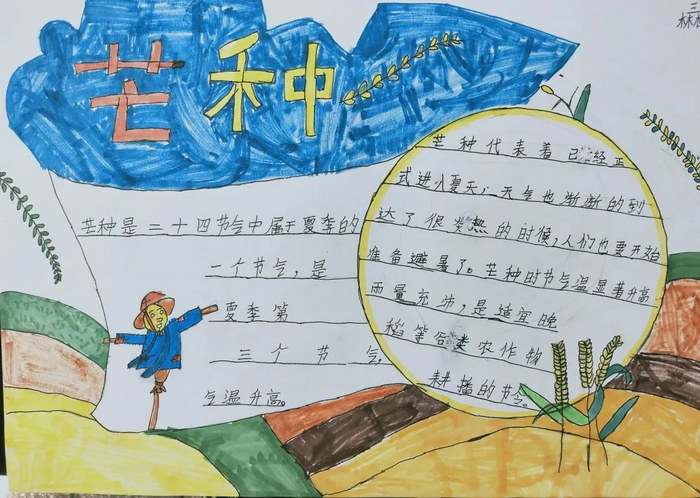 三
林
芒种
芒种是二十四节气中属于夏季的
一个节气，是
夏季第
三个节气。
气温升高。
芒种代表着已经正
式进入夏天；天气也渐渐的到
达了很炎热的时候，人们也要开始
准备避暑了。芒种时节气温显著升高
雨量充沛，是适宜晚
稻等谷类农作物
耕播的节令。